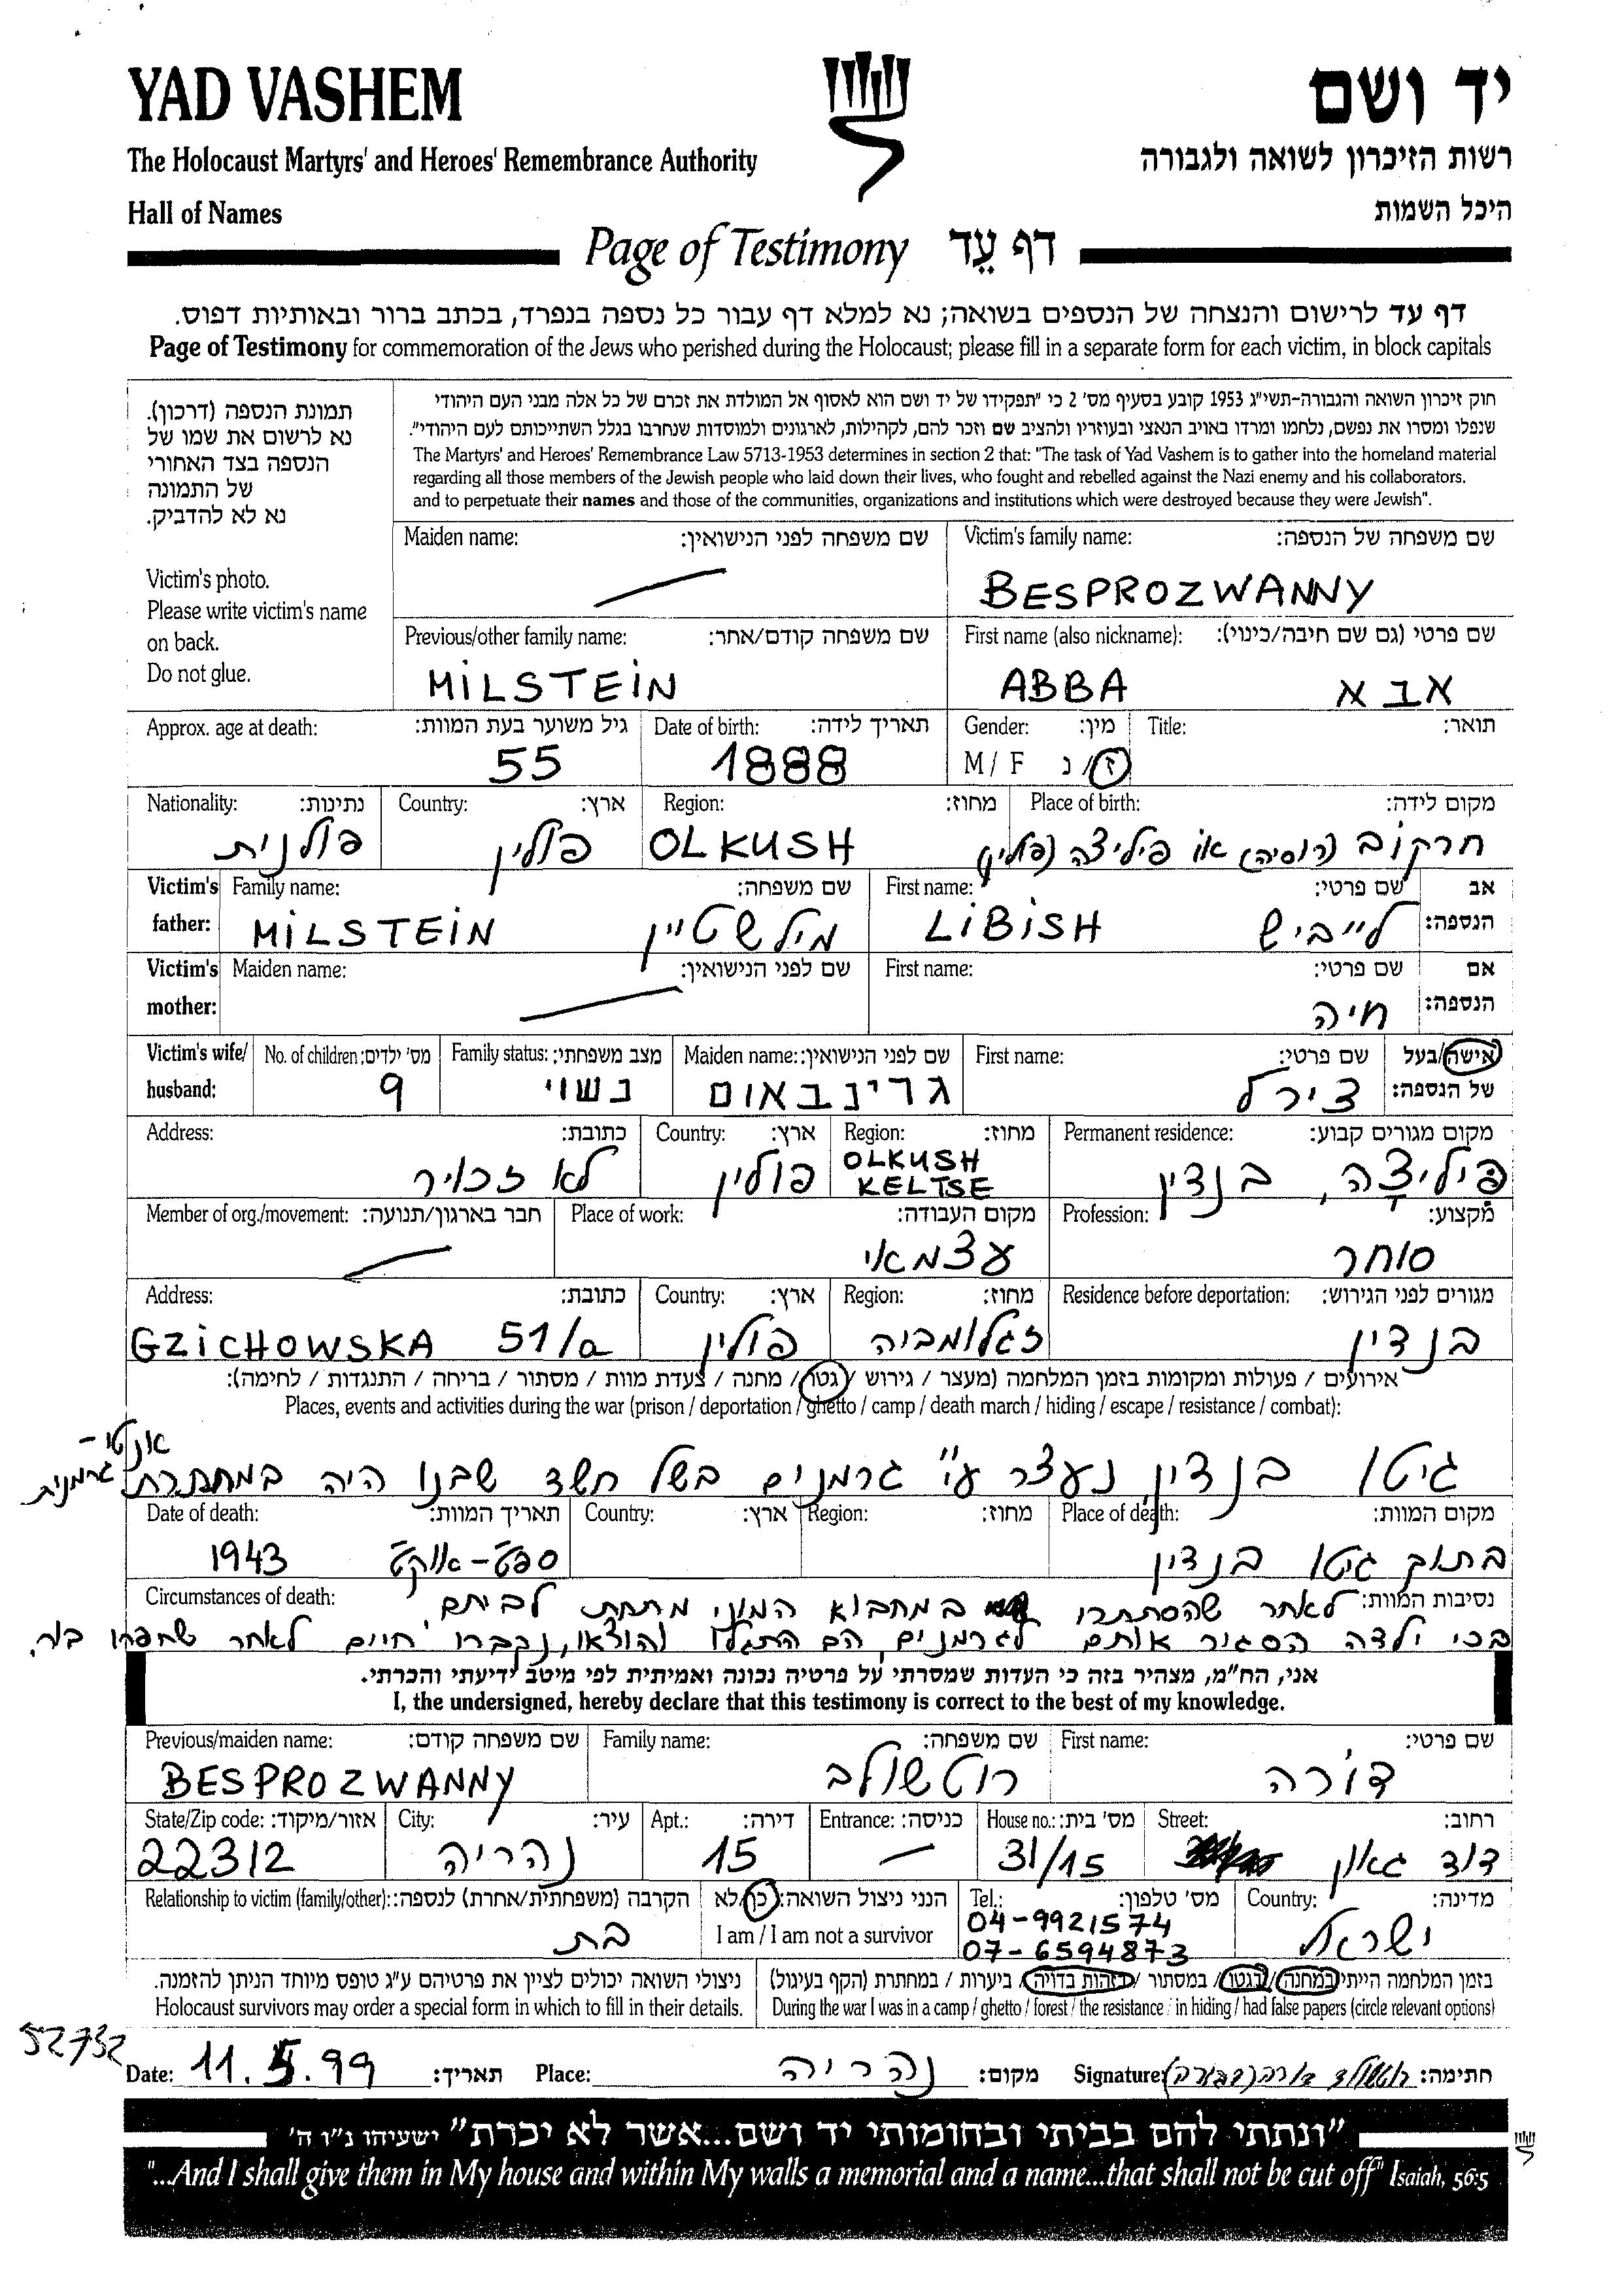 YAD VASHEM יד ושם
The Holocaust Martyrs' and Heroes' Remembrance Authority רשות הזיכרון לשואה ולגבורה
Hall of Names היכל השמות
Page of Testimony דף עֵד
דף עד לרישום והנצחה של הנספים בשואה; נא למלא דף עבור כל נספה בנפרד, בכתב ברור ובאותיות דפוס.
Page of Testimony for commemoration of the Jews who perished during the Holocaust; please fill in a separate form for each victim, in block capitals
תמונת הנספה (דרכון).
נא לרשום את שמו של
הנספה בצד האחורי
של התמונה
נא לא להדביק.
Victim's photo.
Please write victim's name
on back.
Do not glue.
חוק זיכרון השואה והגבורה-תשי"ג 1953 קובע בסעיף מס' 2 כי "תפקידו של יד ושם הוא לאסוף אל המולדת את זכרם של כל אלה מבני העם היהודי
שנפלו ומסרו את נפשם, נלחמו ומרדו באויב הנאצי ובעוזריו ולהציב שם וזכר להם, לקהילות, לארגונים ולמוסדות שנחרבו בגלל השתייכותם לעם היהודי".
The Martyrs' and Heroes' Remembrance Law 5713-1953 determines in section 2 that: "The task of Yad Vashem is to gather into the homeland material
regarding all those members of the Jewish people who laid down their lives, who fought and rebelled against the Nazi enemy and his collaborators.
and to perpetuate their names and those of the communities, organizations and institutions which were destroyed because they were Jewish".
Maiden name: שם משפחה לפני הנישואין: Victim's family name: שם משפחה של הנספה:
BESPROZWANNY
Previous/other family name: שם משפחה קודם/אחר: First name (also nickname): שם פרטי (גם שם חיבה/כינוי):
MILSTEIN ABBA אבא
Approx. age at death: גיל משוער בעת המוות: Date of birth: תאריך לידה: Gender: מין: Title: תואר:
55 1888 M / F ז / נ
Nationality: נתינות: Country: ארץ: Region: מחוז: Place of birth: מקום לידה:
פולנית פולין OLKUSH חרקוב (רוסיה) או פיליצה (פולין)
Victim's father: Family name: שם משפחה: First name: שם פרטי: אב הנספה:
MILSTEIN מילשטיין LIBISH לייביש
Victim's mother: Maiden name: שם לפני הנישואין: First name: שם פרטי: אם הנספה:
חיה
Victim's wife/ husband: No. of children: מס' ילדים: Family status: מצב משפחתי: Maiden name: שם לפני הנישואין: First name: שם פרטי: אישה/בעל של הנספה:
9 נשוי גרינבאום צירל
Address: כתובת: Country: ארץ: Region: מחוז: Permanent residence: מקום מגורים קבוע:
לא זכויר פולין OLKUSH KELTSE פיליצה, בנדין
Member of org./movement: חבר בארגון/תנועה: Place of work: מקום העבודה: Profession: מקצוע:
עצמאי סוחר
Address: כתובת: Country: ארץ: Region: מחוז: Residence before deportation: מגורים לפני הגירוש:
GZICHOWSKA 51/a פולין זגלומביה בנדין
אירועים / פעולות ומקומות בזמן המלחמה (מעצר / גירוש / גטו / מחנה / צעדת מוות / מסתור / בריחה / התנגדות / לחימה):
Places, events and activities during the war (prison / deportation / ghetto / camp / death march / hiding / escape / resistance / combat):
גיטו בנדין, נעצר ע"י גרמנים בשל חשד שבנו היה במחתרת אנטי-גרמנית
Date of death: תאריך המוות: Country: ארץ: Region: מחוז: Place of death: מקום המוות:
1943 ספט-אוקט בתוך גיטו בנדין
Circumstances of death: נסיבות המוות: לאחר שהסתתרו במחבוא המוני מתחת לביתם,
בכי ילדה הסגיר אותם לגרמנים, הם התגלו והוצאו, נקברו חיים לאחר שחפרו בור.
אני, הח"מ, מצהיר בזה כי העדות שמסרתי על פרטיה נכונה ואמיתית לפי מיטב ידיעתי והכרתי.
I, the undersigned, hereby declare that this testimony is correct to the best of my knowledge.
Previous/maiden name: שם משפחה קודם: Family name: שם משפחה: First name: שם פרטי:
BESPROZWANNY רוטשולב דורה
State/Zip code: אזור/מיקוד: City: עיר: Apt.: דירה: Entrance: כניסה: House no.: מס' בית: Street: רחוב:
22312 נהריה 15 31/15 דוד גאון
Relationship to victim (family/other): הקרבה (משפחתית/אחרת) לנספה: הנני ניצול השואה: כן/לא Tel.: מס' טלפון: Country: מדינה:
בת I am / I am not a survivor 04-9921574 ישראל
07-6594873
ניצולי השואה יכולים לציין את פרטיהם ע"ג טופס מיוחד הניתן להזמנה. בזמן המלחמה הייתי במחנה / בגטו / במסתור / בזהות בדויה / ביערות / במחתרת (הקף בעיגול)
Holocaust survivors may order a special form in which to fill in their details. During the war I was in a camp / ghetto / forest / the resistance / in hiding / had false papers (circle relevant options)
52732
Date: 11.5.99 תאריך: Place: נהריה מקום: Signature: חתימה:
"ונתתי להם בביתי ובחומותי יד ושם...אשר לא יכרת" ישעיהו נ"ו ה'
"...And I shall give them in My house and within My walls a memorial and a name...that shall not be cut off" Isaiah, 56:5